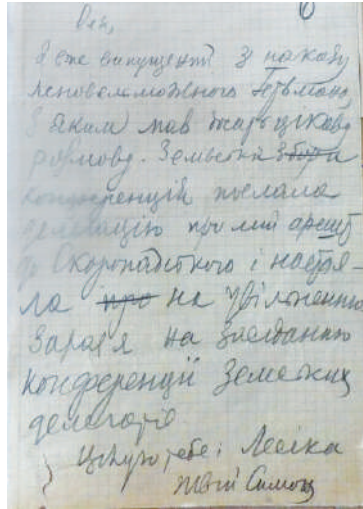 Олю,
Я вже випущений з наказу
ясновельможного Гетьмана,
з яким мав дуже цікаву
розмову. Земська збори
конференція послала
делегацію про мій арешт
до Скоропадського і настоя-
ла про на увільненню
Зараз я на засіданню
конференції Земських
делегатів
Цілую тебе і Лесика
твій Симон